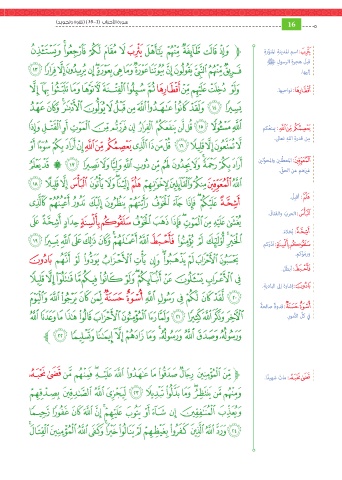 سورة الأحزاب (١٣-٢٤) (تلاوة وتجويد)
16
وَإِذْ قَالَت طَّآئِفَةٌ مِّنْهُمْ يَٰٓأَهْلَ يَثْرِبَ لَا مُقَامَ لَكُمْ فَٱرْجِعُوا۟ ۚ وَيَسْتَـْٔذِنُ
فَرِيقٌ مِّنْهُمُ ٱلنَّبِىَّ يَقُولُونَ إِنَّ بُيُوتَنَا عَوْرَةٌ وَمَا هِىَ بِعَوْرَةٍ ۖ إِن يُرِيدُونَ إِلَّا فِرَارًا ١٣
وَلَوْ دُخِلَتْ عَلَيْهِم مِّنْ أَقْطَارِهَا ثُمَّ سُئِلُوا۟ ٱلْفِتْنَةَ لَـَٔاتَوْهَا وَمَا تَلَبَّثُوا۟ بِهَآ إِلَّا
يَسِيرًا ١٤ وَلَقَدْ كَانُوا۟ عَٰهَدُوا۟ ٱللَّهَ مِن قَبْلُ لَا يُوَلُّونَ ٱلْأَدْبَٰرَ ۚ وَكَانَ عَهْدُ
ٱللَّهِ مَسْـُٔولًا ١٥ قُل لَّن يَنفَعَكُمُ ٱلْفِرَارُ إِن فَرَرْتُم مِّنَ ٱلْمَوْتِ أَوِ ٱلْقَتْلِ وَإِذًا
لَّا تُمَتَّعُونَ إِلَّا قَلِيلًا ١٦ قُلْ مَن ذَا ٱلَّذِى يَعْصِمُكُم مِّنَ ٱللَّهِ إِنْ أَرَادَ بِكُمْ سُوٓءًا أَوْ
أَرَادَ بِكُمْ رَحْمَةً ۚ وَلَا يَجِدُونَ لَهُم مِّن دُونِ ٱللَّهِ وَلِيًّا وَلَا نَصِيرًا ١٧ ۞ قَدْ يَعْلَمُ
ٱللَّهُ ٱلْمُعَوِّقِينَ مِنكُمْ وَٱلْقَآئِلِينَ لِإِخْوَٰنِهِمْ هَلُمَّ إِلَيْنَا ۖ وَلَا يَأْتُونَ ٱلْبَأْسَ إِلَّا قَلِيلًا ١٨
أَشِحَّةً عَلَيْكُمْ ۖ فَإِذَا جَآءَ ٱلْخَوْفُ رَأَيْتَهُمْ يَنظُرُونَ إِلَيْكَ تَدُورُ أَعْيُنُهُمْ كَٱلَّذِى
يُغْشَىٰ عَلَيْهِ مِنَ ٱلْمَوْتِ ۖ فَإِذَا ذَهَبَ ٱلْخَوْفُ سَلَقُوكُم بِأَلْسِنَةٍ حِدَادٍ أَشِحَّةً عَلَى
ٱلْخَيْرِ ۚ أُو۟لَٰٓئِكَ لَمْ يُؤْمِنُوا۟ فَأَحْبَطَ ٱللَّهُ أَعْمَٰلَهُمْ ۚ وَكَانَ ذَٰلِكَ عَلَى ٱللَّهِ يَسِيرًا ١٩
يَحْسَبُونَ ٱلْأَحْزَابَ لَمْ يَذْهَبُوا۟ ۖ وَإِن يَأْتِ ٱلْأَحْزَابُ يَوَدُّوا۟ لَوْ أَنَّهُم بَادُونَ
فِى ٱلْأَعْرَابِ يَسْـَٔلُونَ عَنْ أَنۢبَآئِكُمْ ۖ وَلَوْ كَانُوا۟ فِيكُم مَّا قَٰتَلُوٓا۟ إِلَّا قَلِيلًا
٢٠ لَّقَدْ كَانَ لَكُمْ فِى رَسُولِ ٱللَّهِ أُسْوَةٌ حَسَنَةٌ لِّمَن كَانَ يَرْجُوا۟ ٱللَّهَ وَٱلْيَوْمَ
ٱلْـَٔاخِرَ وَذَكَرَ ٱللَّهَ كَثِيرًا ٢١ وَلَمَّا رَءَا ٱلْمُؤْمِنُونَ ٱلْأَحْزَابَ قَالُوا۟ هَٰذَا مَا وَعَدَنَا ٱللَّهُ
وَرَسُولُهُۥ وَصَدَقَ ٱللَّهُ وَرَسُولُهُۥ ۚ وَمَا زَادَهُمْ إِلَّآ إِيمَٰنًا وَتَسْلِيمًا ٢٢
مِّنَ ٱلْمُؤْمِنِينَ رِجَالٌ صَدَقُوا۟ مَا عَٰهَدُوا۟ ٱللَّهَ عَلَيْهِ ۖ فَمِنْهُم مَّن قَضَىٰ نَحْبَهُۥ
وَمِنْهُم مَّن يَنتَظِرُ ۖ وَمَا بَدَّلُوا۟ تَبْدِيلًا ٢٣ لِّيَجْزِىَ ٱللَّهُ ٱلصَّٰدِقِينَ بِصِدْقِهِمْ
وَيُعَذِّبَ ٱلْمُنَٰفِقِينَ إِن شَآءَ أَوْ يَتُوبَ عَلَيْهِمْ ۚ إِنَّ ٱللَّهَ كَانَ غَفُورًا رَّحِيمًا
٢٤ وَرَدَّ ٱللَّهُ ٱلَّذِينَ كَفَرُوا۟ بِغَيْظِهِمْ لَمْ يَنَالُوا۟ خَيْرًا ۚ وَكَفَى ٱللَّهُ ٱلْمُؤْمِنِينَ ٱلْقِتَالَ ۚ
يَثْرِبَ: اسم المدينة المنورة
قبل هجرة الرسول ﷺ
إليها.
أَقْطَارِهَا: نواحيها.
يَعْصِمُكُم مِّنَ اللَّهِ: يمنعكم
من قدرة الله تعالى.
هَلُمَّ: أقبل.
الْبَأْسَ: الحرب والقتال.
أَشِحَّةً: بخلاء.
سَلَقُوكُم بِأَلْسِنَةٍ:
فَأَحْبَطَ: أبطل.
بَادُونَ:
أُسْوَةٌ حَسَنَةٌ: قدوة صالحة
في كل الأمور.
قَضَىٰ نَحْبَهُ: مات شهيدًا.